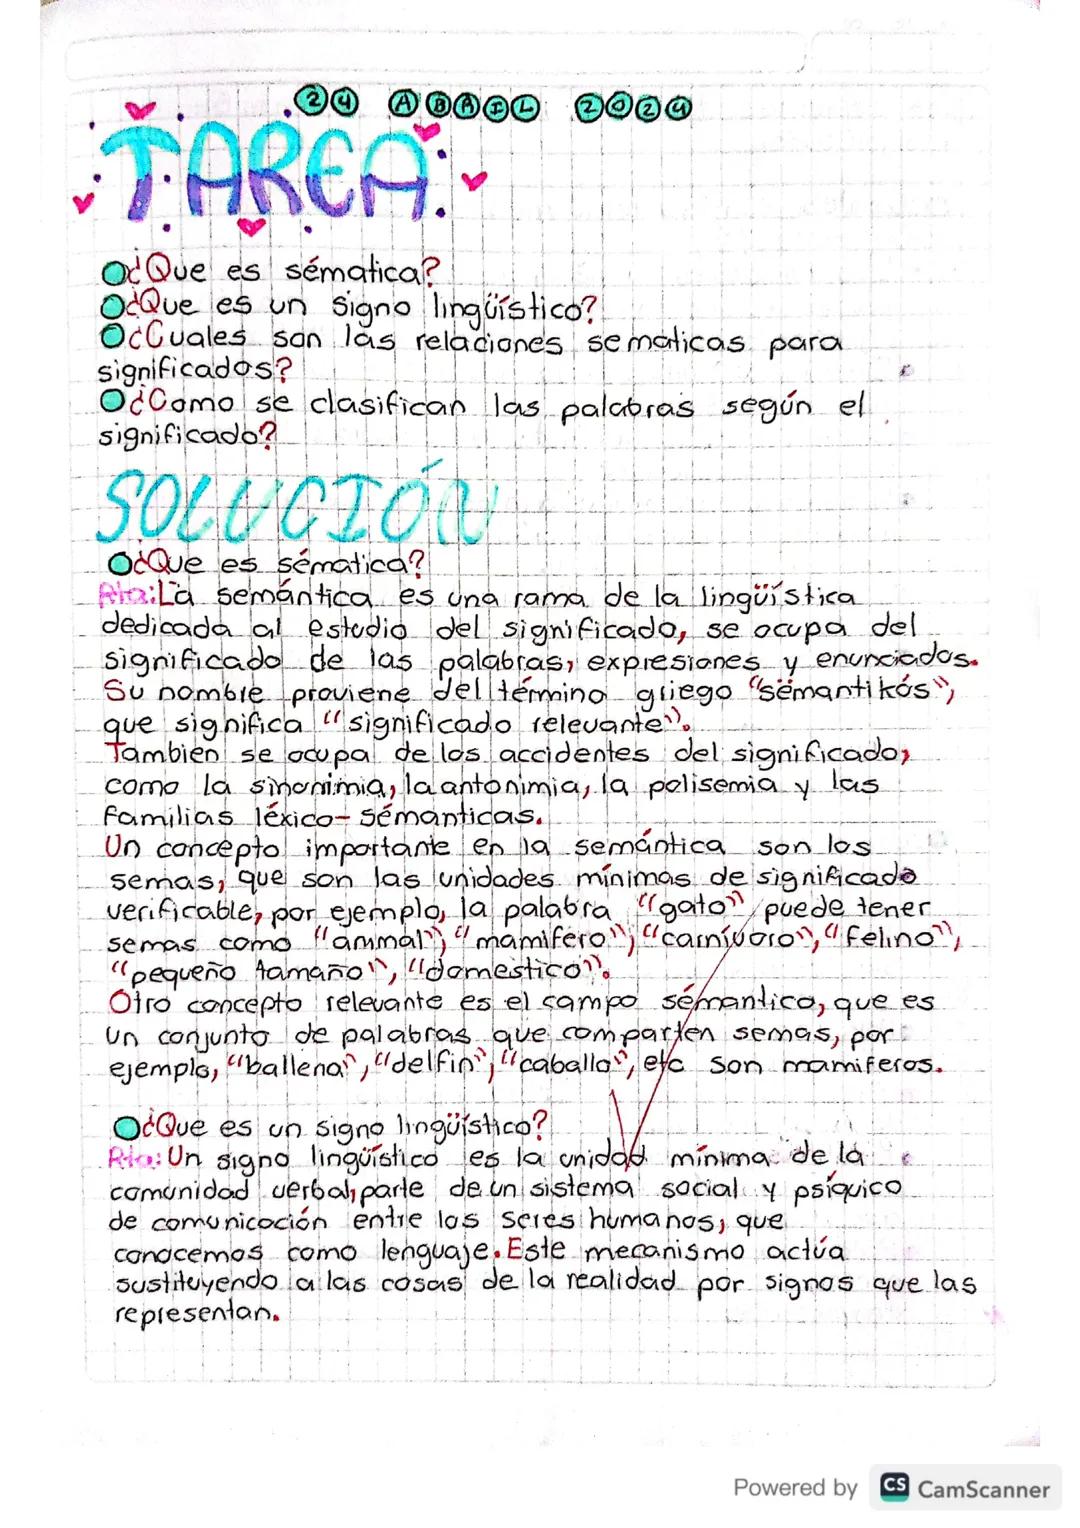 24 ABRIL 2024
TAREA
¿Que es sématica?
¿Que es un signo lingüístico?
¿Cuales son las relaciones sematicas para
significados?
¿Como se clasifican las palabras según el
significado?
SOLUCIÓN
¿Que es sématica?
Rta: La semántica es una rama de la lingüística
dedicada al estudio del significado, se ocupa del
significado de las palabras, expresiones y enunciados.
Su nombre proviene del término griego "sëmantikós",
que significa "significado relevante".
También se ocupa de los accidentes del significado,
como la sinonimia, la antonimia, la polisemia y las
familias léxico-sémanticas.
Un concepto importante en la semántica son los
semas, que son las unidades mínimas de significado
verificable, por ejemplo, la palabra "gato" puede tener
semas como "animal", "mamifero", "carnívoro", "felino",
"pequeño tamaño", "domestico".
Otro concepto relevante es el campo sémantico, que es
un conjunto de palabras que comparten semas, por
ejemplo, "ballena", "delfin", "caballo", etc son mamiferos.
¿Que es un signo lingüístico?
Rta: Un signo lingüístico es la unidad mínima de la
comunidad verbal, parte de un sistema social y psíquico
de comunicación entre los seres humanos, que
conocemos como lenguaje. Este mecanismo actúa
sustituyendo a las cosas de la realidad por signos que las
representan.
Powered by CS CamScanner